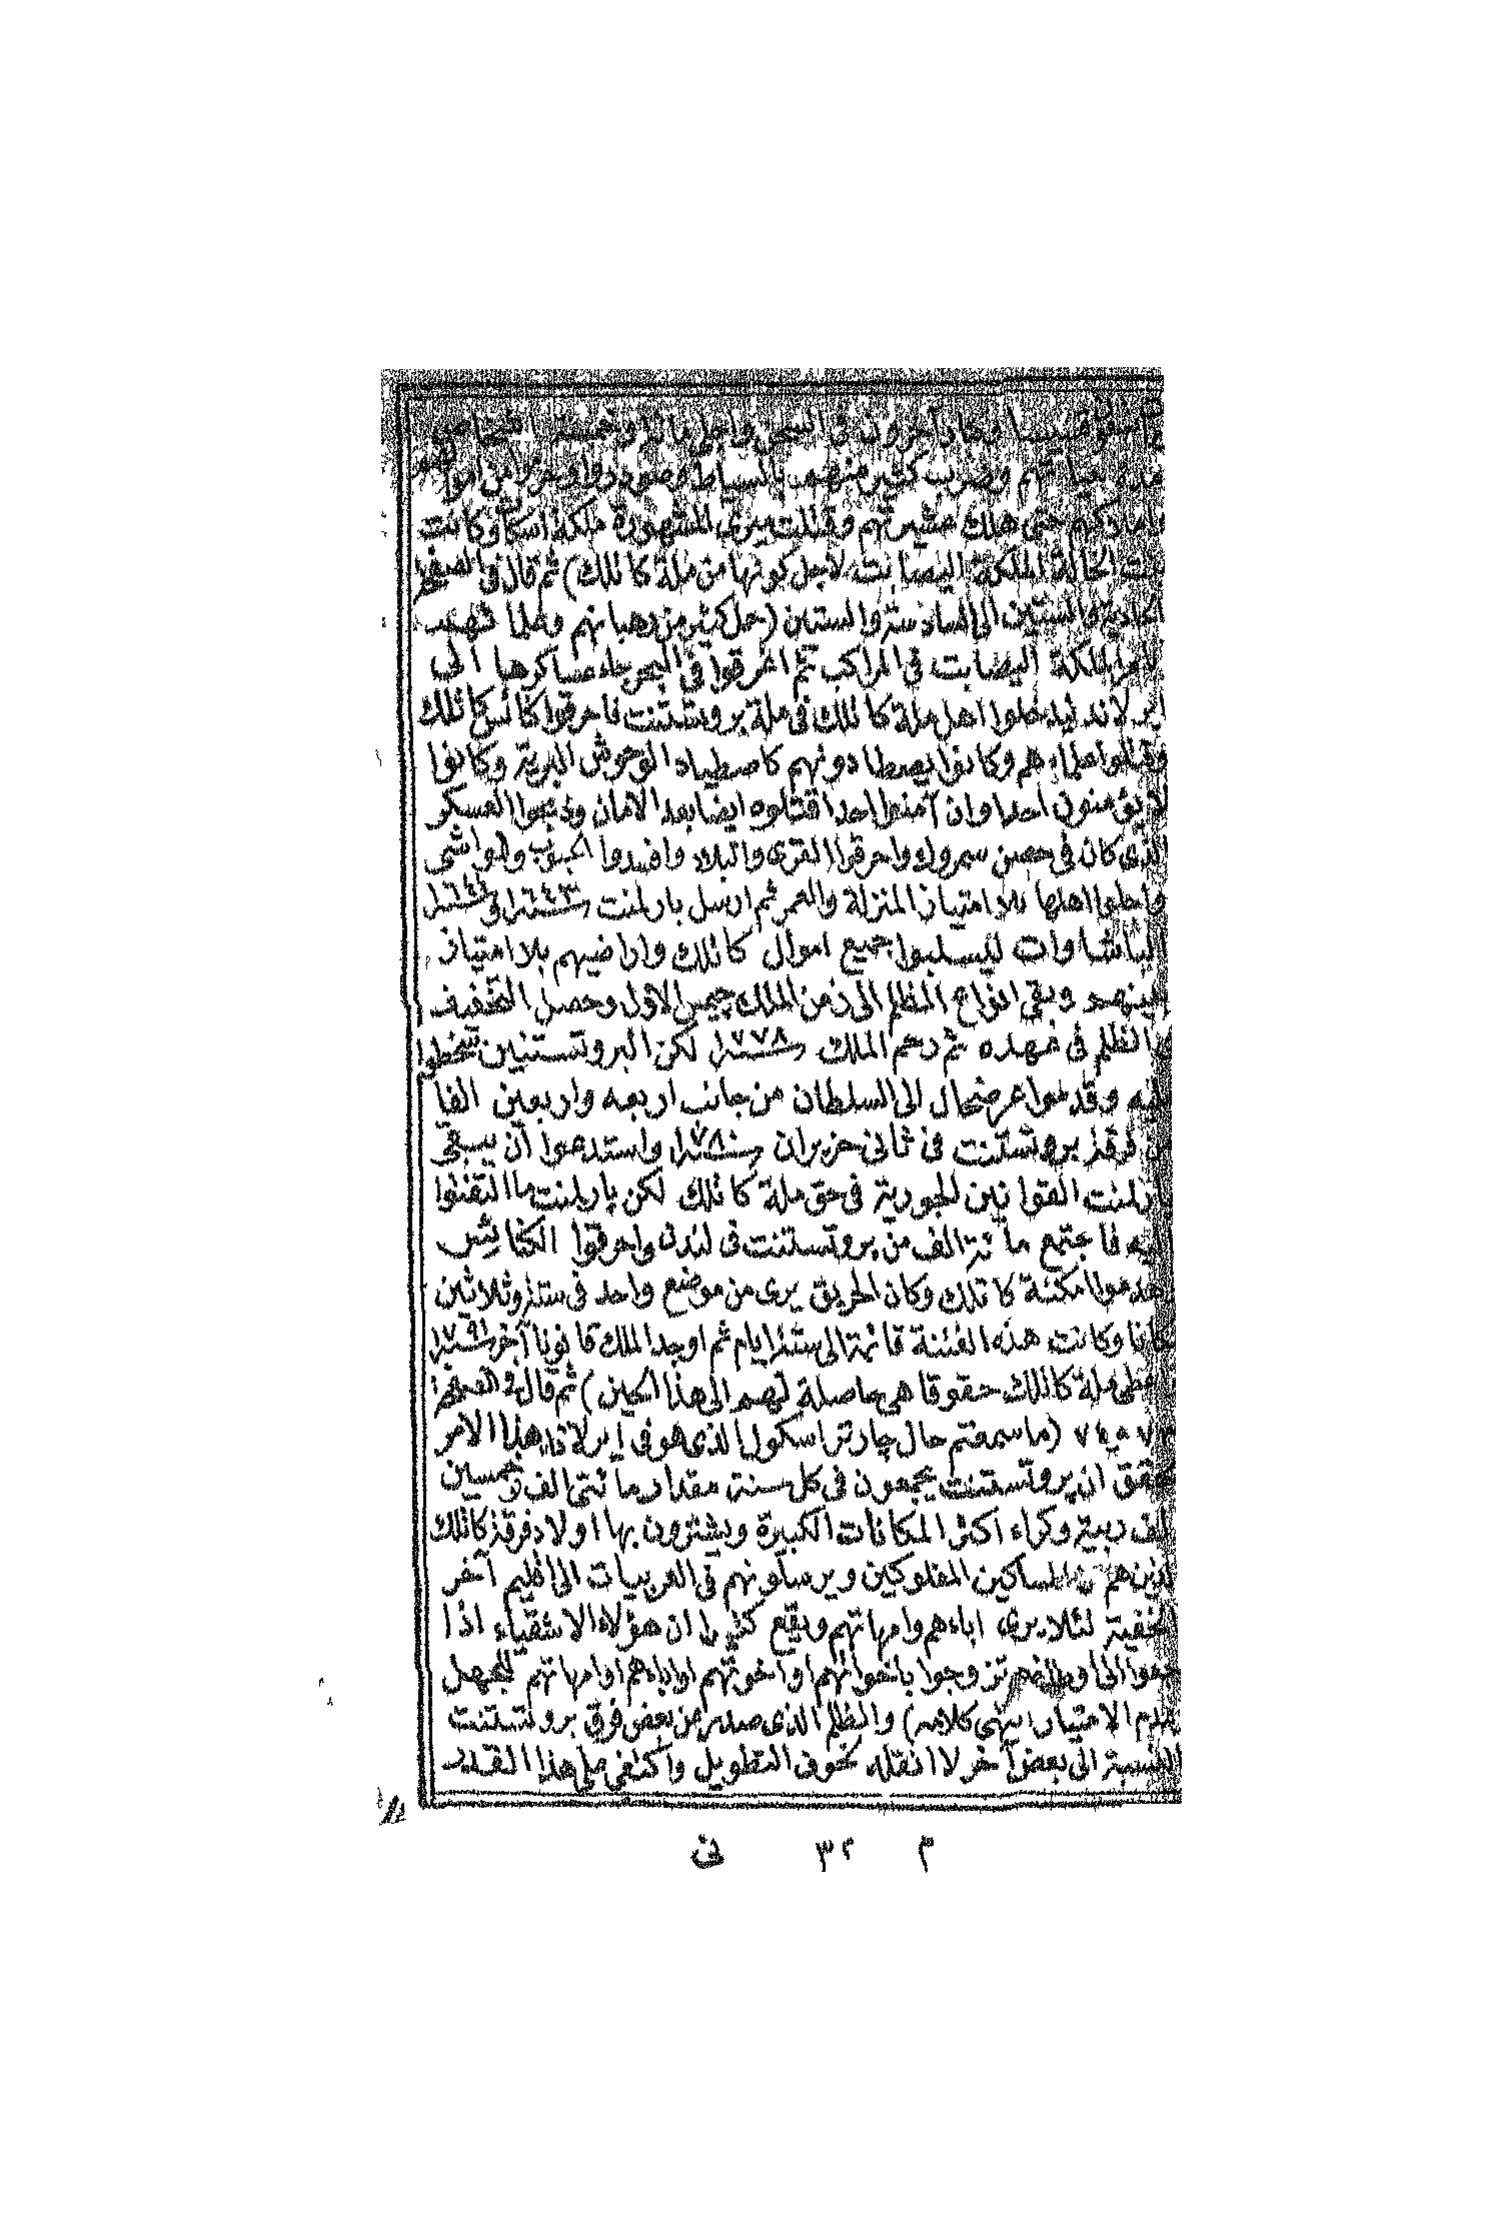 قسيسا وماد آخرون فى السجن واجل مائة وخمسة اشخاص
مدة حياتهم وضرب كثير منهم بالسياط وصودروا وحرموا من اموا لهم
واملاكهم حتى هلك عشيرتهم وقتلت ميرى المشهورة ملكة اسكاٹ وكانت
بنت الخالة الملكة اليصابت لاجل كونها من ملة كاتلك) ثم قال فى الصفحة
الحادية والستين الى السادسة والستين (حمل كثير من رهبانهم وعلمائهم
بامر الملكة اليصابت فى المراكب ثم اغرقوا فى البحر جاء عساكرها الى
ايرلاند ليدخلوا اهل ملة كاتلك فى ملة بروتستنت فاحرقوا كنائس كاتلك
وقتلوا علماءهم وكانوا يصطادونهم كاصطياد الوحوش البرية وكانوا
لا يؤمنون احدا وان آمنوا احدا قتلوه ايضا بعد الامان وذبحوا العسكر
الذى كان فى حصن سمروك واحرقوا القرى والبلاد وافسدوا الحبوب والمواشى
واجلوا اهلها بلا امتياز المنزلة والعمر ثم ارسل بارلمنت ١٦٤٣ فى ١٦٤٤
الباشاوات ليسلبوا جميع اموال كاتلك واراضيهم بلا امتياز
بينهم وبقى انواع الظلم الى زمن الملك جيمس الاول وحصل التخفيف
فى الظلم فى عهده ثم رحم الملك ١٧٧٨ لكن البروتستنيين سخطوا
عليه وقدموا عرضحال الى السلطان من جانب اربعه واربعين الفا
من فرقة بروتستنت فى ثانى حزيران ١٧٨٠ واستدعوا ان يبقى
بارلمنت القوانين الجورية فى حق ملة كاتلك لكن پارلمنت ما التفتوا
اليه فاجتمع مائة الف من بروتستنت فى لندن واحرقوا الكنائس
وهدموا امكنة كاتلك وكان الحريق يرى من موضع واحد فى ستة وثلاثين
مكانا وكانت هذه الفتنة قائمة الى ستة ايام ثم اوجد الملك قانونا آخر ١٧٩١
واعطى ملة كاتلك حقوقا هى حاصلة لهم الى هذا الحين) ثم قال فى الصفحة
٧٣ و٧٤ (ما سمعتم حال چارتر اسكول الذى هو فى ايرلاند هذا الامر
محقق ان پروتستنت يجمعون فى كل سنة مقدار مائتى الف وخمسين
الف ربية وكراء اكثر المكانات الكبيرة ويشترون بها اولاد فرقة كاتلك
الذين هم من المساكين المفلوكين ويرسلونهم فى العربيات الى اقليم آخر
بالخفية لئلا يرى اباءهم وامهاتهم ويقع كثيرا ان هؤلاء الاشقياء اذا
رجعوا الى اوطانهم تزوجوا باخوانهم او اخوتهم او اباءهم او امهاتهم للجهل
بعدم الامتياز انتهى كلامه) والظلم الذى صدر من بعض فرق بروتستنت
بالنسبة الى بعض آخر لا انقله لخوف التطويل واكتفى على هذا القدر
م ٣٢ نى